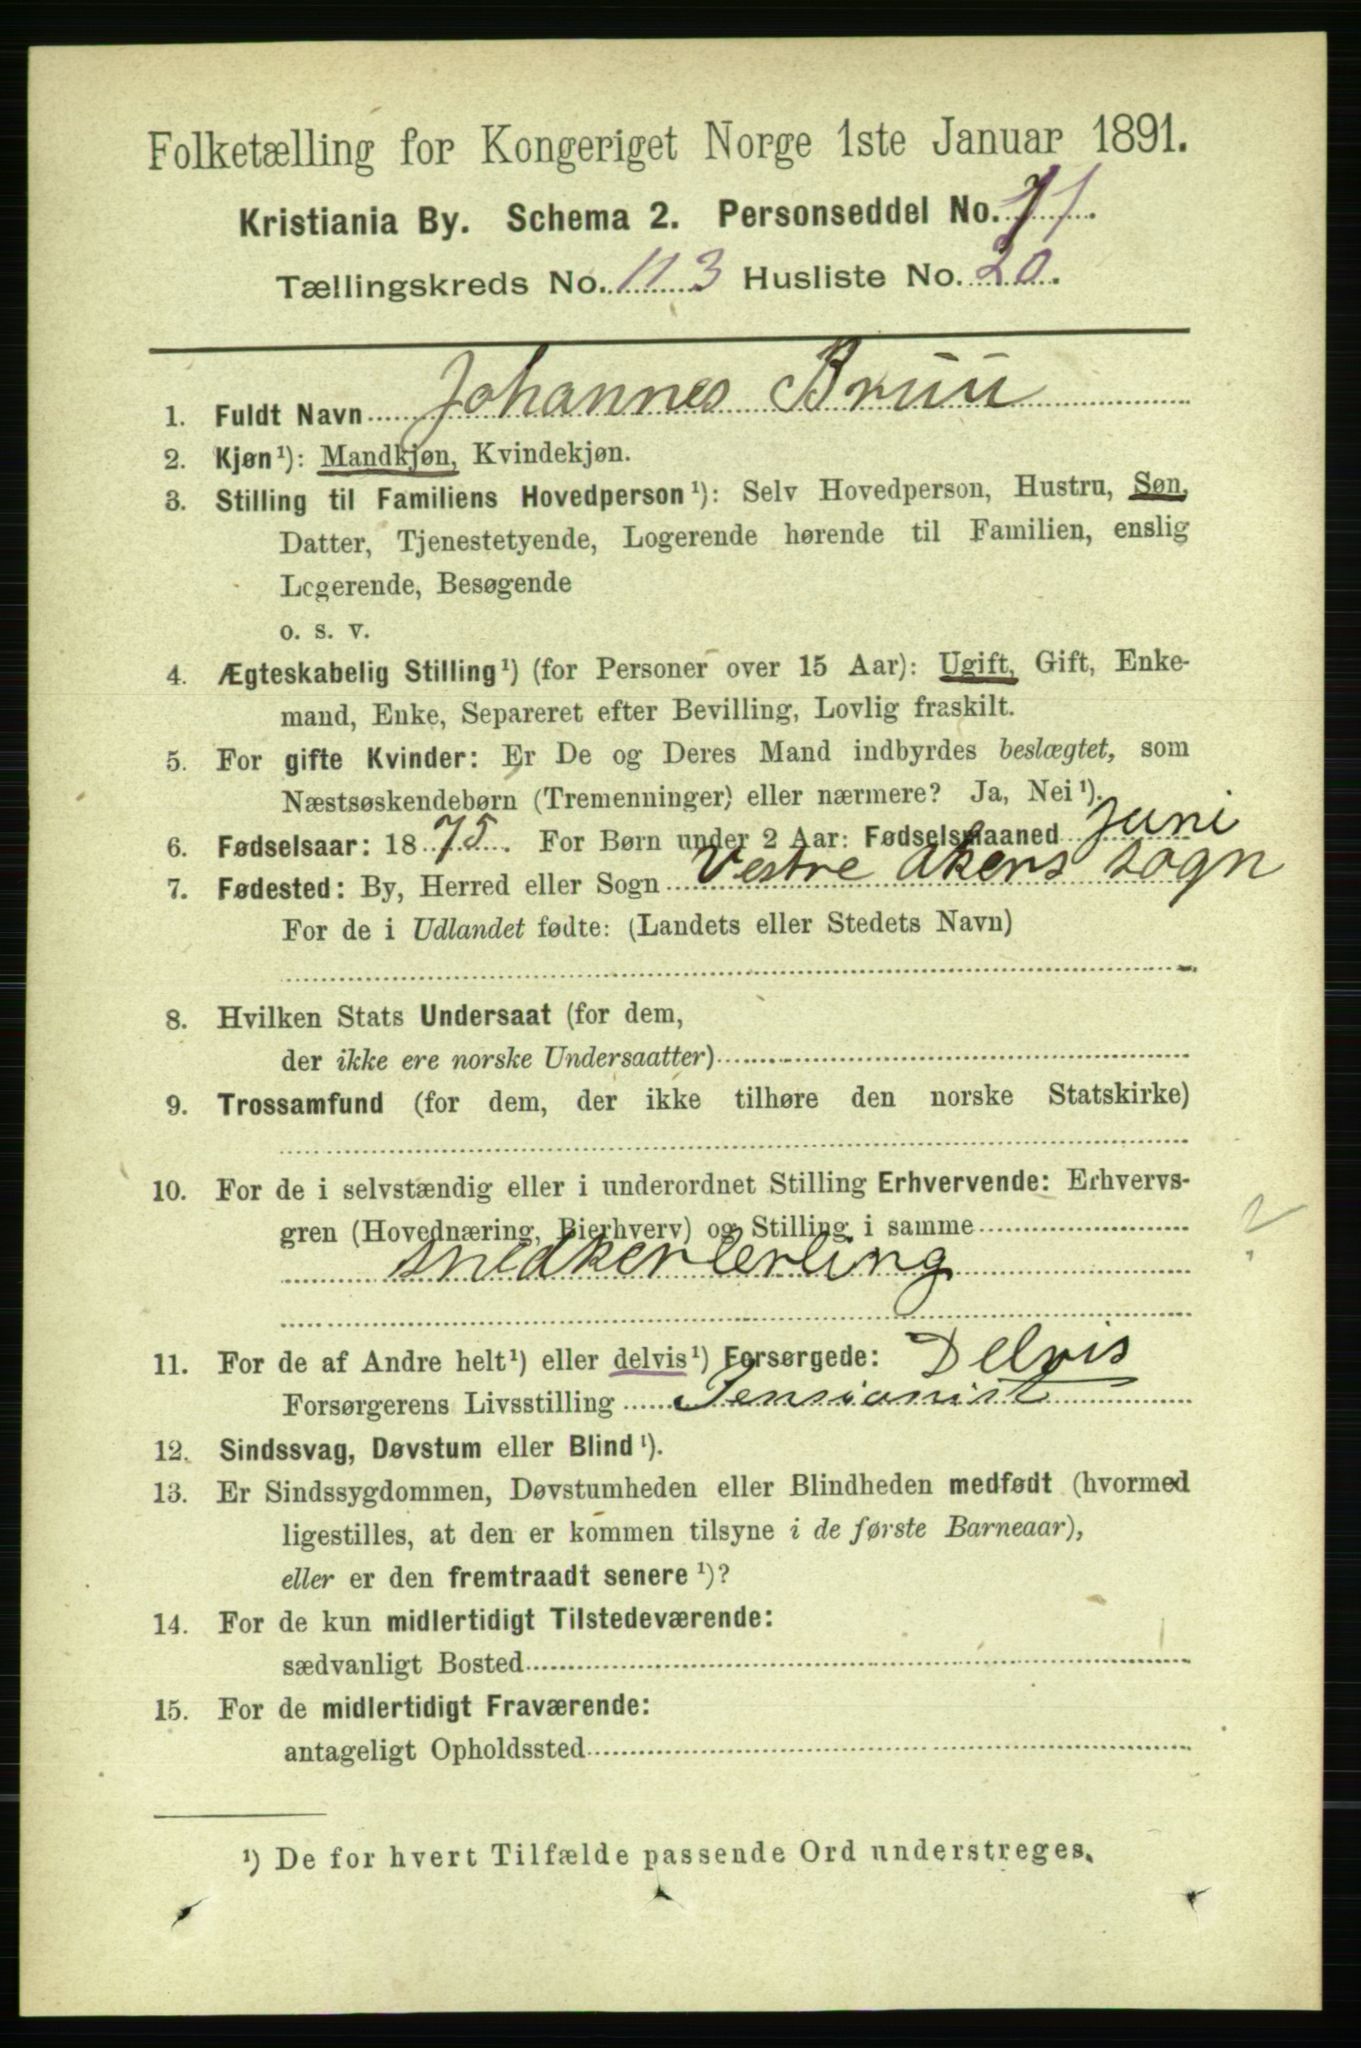 Folketælling for Kongeriget Norge 1ste Januar 1891.
Kristiania By. Schema 2. Personseddel No. 11.
Tællingskreds No. 113 Husliste No. 20.
1. Fuldt Navn Johannes Bruu
2. Kjøn¹): Mandkjøn, Kvindekjøn.
3. Stilling til Familiens Hovedperson¹): Selv Hovedperson, Hustru, Søn,
Datter, Tjenestetyende, Logerende hørende til Familien, enslig
Logerende, Besøgende
o. s. v.
4. Ægteskabelig Stilling¹) (for Personer over 15 Aar): Ugift, Gift, Enke-
mand, Enke, Separeret efter Bevilling, Lovlig fraskilt.
5. For gifte Kvinder: Er De og Deres Mand indbyrdes beslægtet, som
Næstsøskendebørn (Tremenninger) eller nærmere? Ja, Nei¹).
6. Fødselsaar: 1875. For Børn under 2 Aar: Fødselsmaaned Juni
7. Fødested: By, Herred eller Sogn Vestre Akers sogn
For de i Udlandet fødte: (Landets eller Stedets Navn)
8. Hvilken Stats Undersaat (for dem,
der ikke ere norske Undersaatter)
9. Trossamfund (for dem, der ikke tilhøre den norske Statskirke)
10. For de i selvstændig eller i underordnet Stilling Erhvervende: Erhvervs-
gren (Hovednæring, Bierhverv) og Stilling i samme ?
snedkerlerling
11. For de af Andre helt¹) eller delvis¹) Forsørgede: Delvis
Forsørgerens Livsstilling Pensionist
12. Sindssvag, Døvstum eller Blind¹).
13. Er Sindssygdommen, Døvstumheden eller Blindheden medfødt (hvormed
ligestilles, at den er kommen tilsyne i de første Barneaar),
eller er den fremtraadt senere¹)?
14. For de kun midlertidigt Tilstedeværende:
sædvanligt Bosted
15. For de midlertidigt Fraværende:
antageligt Opholdssted
¹) De for hvert Tilfælde passende Ord understreges.